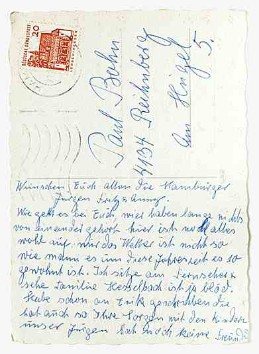 DEUTSCHE BUNDESPOST
20
Paul Bohn
4134 Rheinberg
Am Hügel
5.
Wünschen Euch allen die Hamburger
Jürgen Fritz u.
Wie geht es bei Euch, wir haben lange nichts
von einander gehört hier ist noch alles
wohl auf nur das Wetter ist nicht so
wie mann es um diese Jahreszeit so
gewohnt ist. Ich sitze am Fernseher
Familie Hesselbach ist ja blöd.
Habe schon an Erika geschrieben die
hat auch so Ihre Sorgen mit den Kindern
unser Jürgen hat noch keine